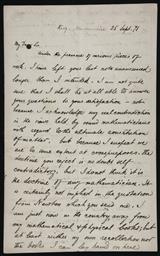 25 Sept. 71
My Dear Sir
Under the pressure of various pieces of
work, I have left your last note unanswered
longer than I intended. I am not quite
sure that I shall be at all able to answer
your questions to your satisfaction - not
because I acknowledge any self contradiction
in the views held by sound mathematicians
with regard to the ultimate constitution
of matter, but because I suspect we
are to some extent at cross purposes. The
doctrine you reject is no doubt self-
contradictory, but I do not think it is
the doctrine of any mathematician. It
is certainly not implied in the quotation
from Newton which you send me. I
am just now in the country away from
my mathematical & physical books; but
neither my own recollection nor
the books I can lay hand on here